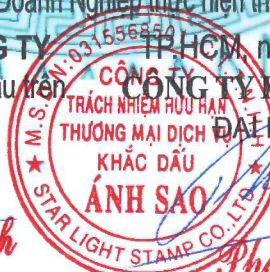 Doanh Nghiệp thực hiện th
G TY
TP.HCM, n
u trên
CÔNG TY
M.S.D.N:0315568
CÔNG TY
TRÁCH NHIỆM HỮU HẠN
THƯƠNG MẠI DỊCH VỤ
ĐẠI
KHẮC DẤU
ÁNH SAO
STAR LIGHT STAMP CO.,LTD